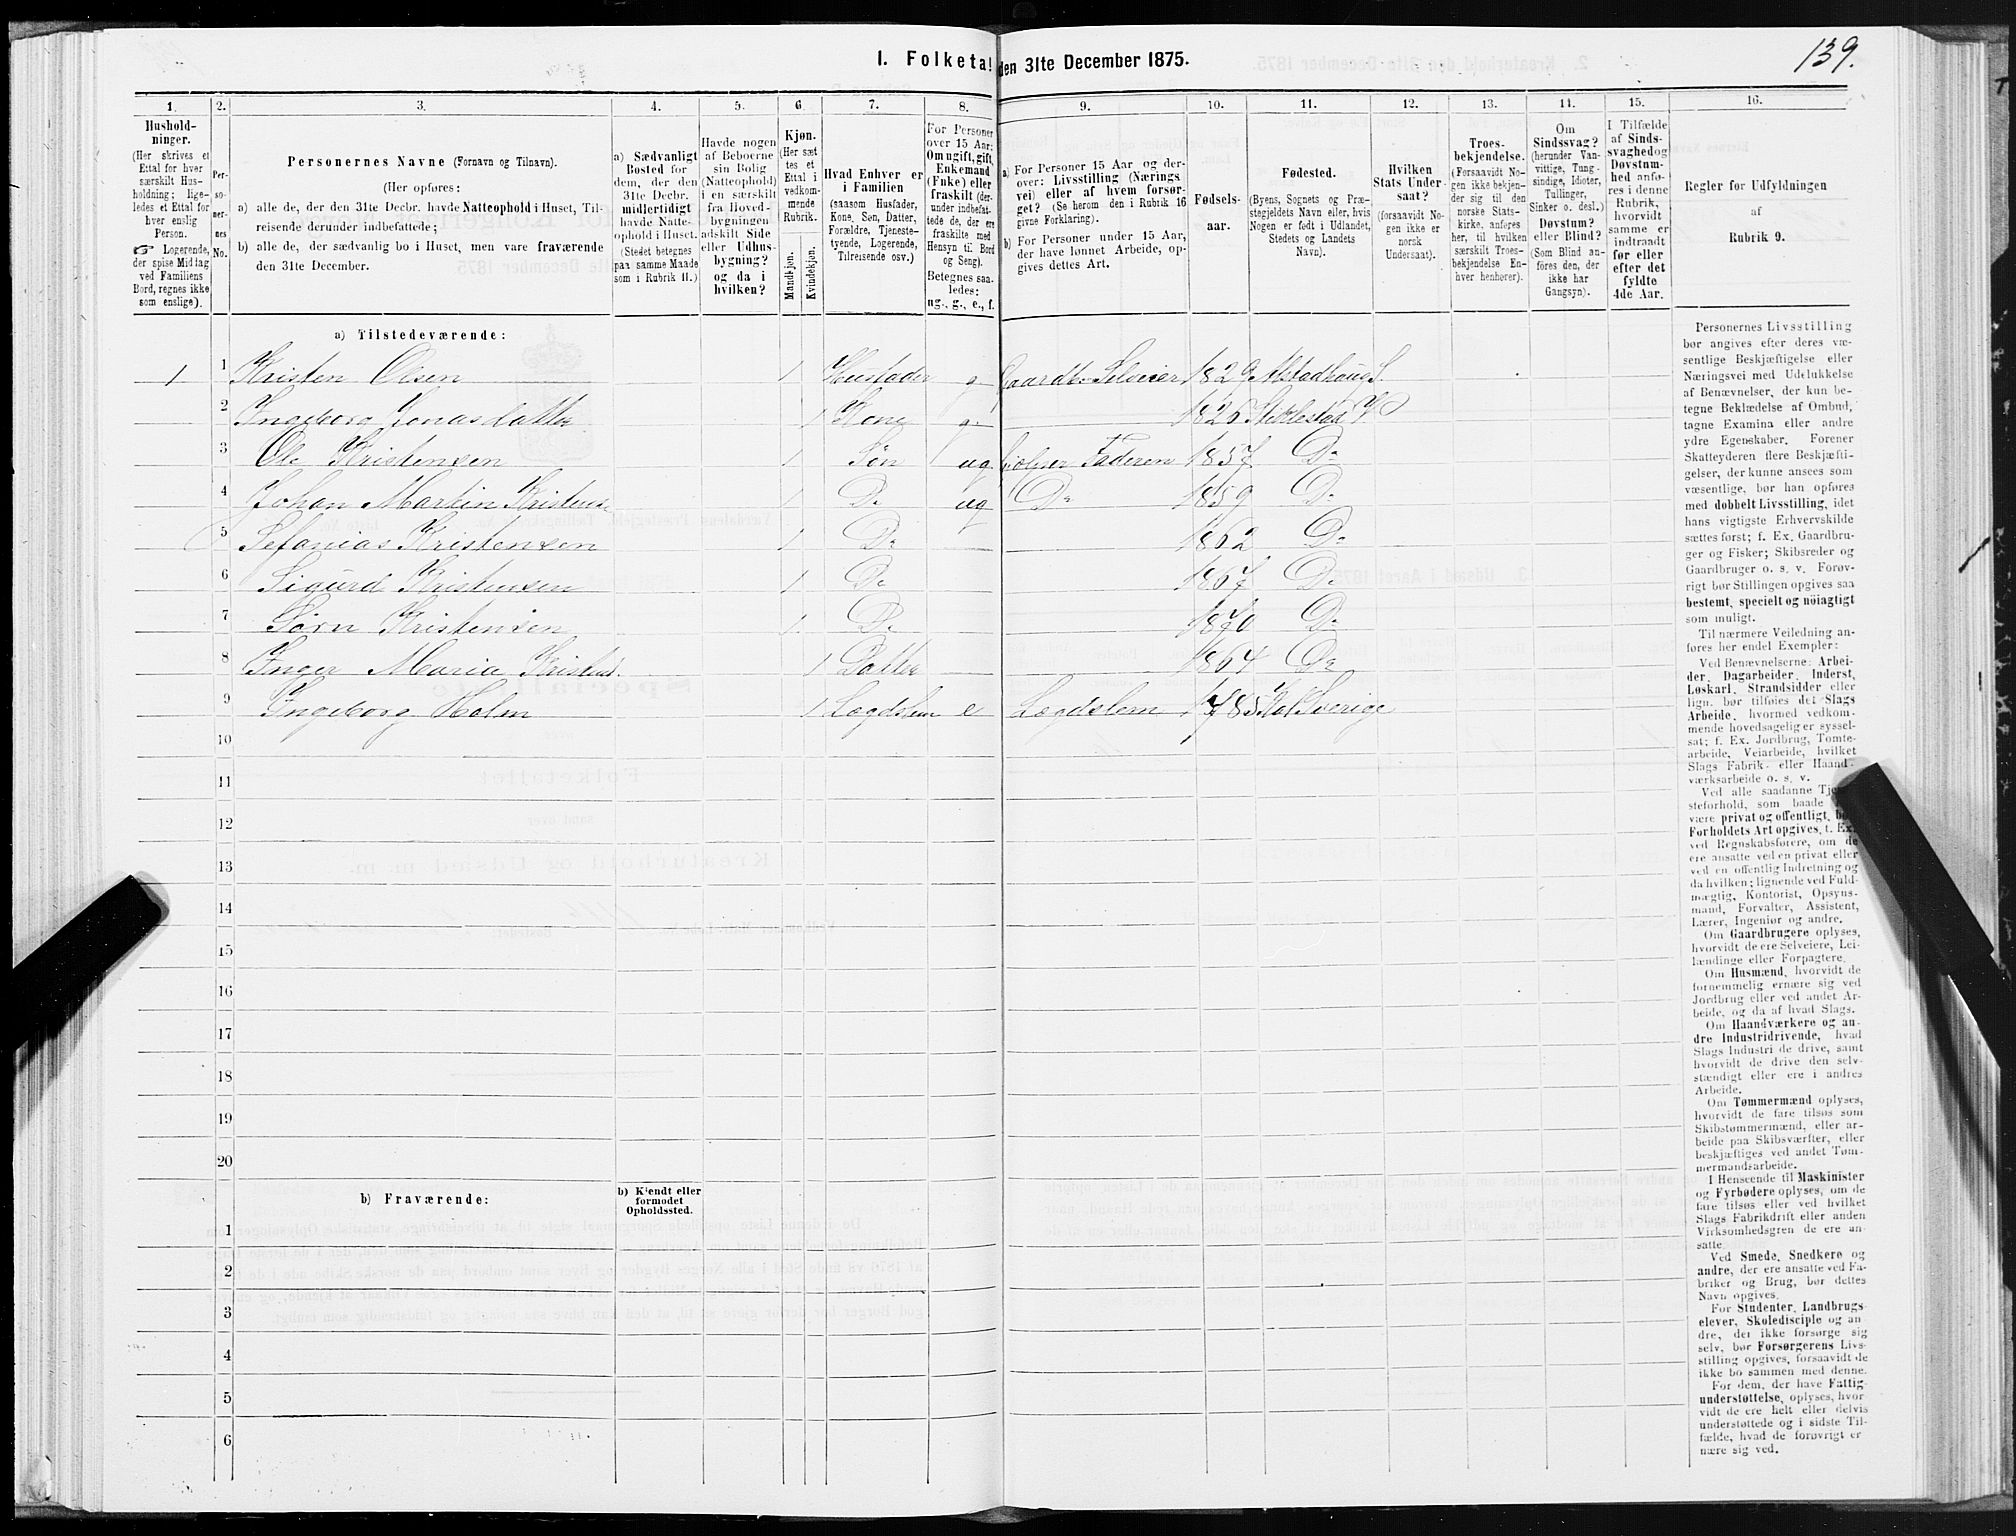 139.
I. Folketal den 31te December 1875.
1. 2. 3. 4. 5. 6. 7. 8. 9. 10. 11. 12. 13. 14. 15. 16.
Hushold-
ninger.
(Her skrives et
Ettal for hver
særskilt Hus-
holdning; lige-
ledes et Ettal for
hver enslig
Person.
☞ Logerende,
der spise Middag
ved Familiens
Bord, regnes ikke
som enslige).
Per-
so-
ner-
nes
No.
Personernes Navne (Fornavn og Tilnavn).
(Her opføres:
a) alle de, der den 31te Decbr. havde Natteophold i Huset, Til-
reisende derunder indbefattede;
b) alle de, der sædvanlig bo i Huset, men vare fraværende
den 31te December.
a) Sædvanligt
Bosted for
dem, der den
31te Decbr.
midlertidigt
havde Natte-
ophold i Huset.
(Stedet betegnes
paa samme Maade
som i Rubrik 11.)
Havde nogen
af Beboerne
sin Bolig
(Natteophold)
i en særskilt
fra Hoved-
bygningen
adskilt Side
eller Udhus-
bygning?
og da i
hvilken?
Kjøn.
(Her sæt
tes et
Ettal i
vedkom-
mende
Rubrik.
Mandkjøn.
Kvindekjøn.
Hvad Enhver er
i Familien
(saasom Husfader,
Kone, Søn, Datter,
Forældre, Tjeneste-
tyende, Logerende,
Tilreisende osv.)
For Personer
over 15 Aar:
Om ugift, gift,
Enkemand
(Enke) eller
fraskilt (der-
under indbefat-
tede de, der ere
fraskilte med
Hensyn til Bord
og Seng).
Betegnes saa-
ledes:
ug., g., e., f.
a) For Personer 15 Aar og der-
over: Livsstilling (Nærings
vei) eller af hvem forsør-
get? (Se herom den i Rubrik 16
givne Forklaring).
b) For Personer under 15 Aar,
der have lønnet Arbeide, op-
gives dettes Art.
Fødsels-
aar.
Fødested.
(Byens, Sognets og Præ-
stegjeldets Navn eller, hvis
Nogen er født i Udlandet,
Stedets og Landets
Navn).
Hvilken
Stats Under-
saat?
(forsaavidt No-
gen ikke er
norsk
Undersaat).
Troes-
bekjendelse.
(Forsaavidt No-
gen ikke bekjen-
der sig til den
norske Stats-
kirke, anføres
her, til hvilken
særskilt Troes-
bekjendelse En-
hver henhører).
Om
Sindssvag?
(herunder Van-
vittige, Tung-
sindige, Idioter,
Tullinger,
Sinker o. desl.)
Døvstum?
eller Blind?
(Som Blind an-
føres den, der
ikke har
Gangsyn).
I Tilfælde
af Sinds-
svaghed og
Døvstum-
hed anfø-
res i denne
Rubrik,
hvorvidt
samme er
indtraadt
før eller
efter det
fyldte
4de Aar.
Regler for Udfyldningen
af
Rubrik 9.
a) Tilstedeværende:
1 1 Kristen Olsen 1 Husfader g. Gaardbr. Selveier 1829 Alstadhaug S.
2 Ingeborg Jonasdatter 1 Kone g. 1826 Stiklestad
3 Ole Kristensen 1 Søn ug Hjelper Faderen 1857 Do
4 Johan Martin Kristens. 1 Do ug Do 1859 Do
5 Sefanias Kristensen 1 Do 1862 Do
6 Sigurd Kristensen 1 Do 1867 Do
7 Sørn Kristensen 1 Do 1870 Do
8 Inger Maria Kristensd. 1 Datter 1864 Do
9 Ingeborg Holm 1 Lægdslem e Lægdslem 1785 Sverige
10
11
12
13
14
15
16
17
18
19
20
b) Fraværende:
b) Kjendt eller
formodet
Opholdssted.
1
2
3
4
5
6
Personernes Livsstilling
bør angives efter deres væ-
sentlige Beskjæftigelse eller
Næringsvei med Udelukkelse
af Benævnelser, der kun be-
tegne Beklædelse af Ombud,
tagne Examina eller andre
ydre Egenskaber. Forener
Skatteyderen flere Beskjæfti-
gelser, der kunne ansees som
væsentlige, bør han opføres
med dobbelt Livsstilling, idet
hans vigtigste Erhvervskilde
sættes først; f. Ex. Gaardbru-
ger og Fisker; Skibsreder og
Gaardbruger o. s. v. Forøv-
rigt bør Stillingen opgives saa
bestemt, specielt og nöiagtigt
som muligt.
Til nærmere Veiledning an-
føres her endel Exempler:
Ved Benævnelserne: Arbei-
der, Dagarbeider, Inderst,
Løskarl, Strandsidder eller
lign. bør tilføies det Slags
Arbeide, hvormed vedkom-
mende hovedsagelig er syssel-
sat; f. Ex. Jordbrug, Tomte-
arbeide, Veiarbeide, hvilket
Slags Fabrik- eller Haand-
værksarbeide o. s. v.
Ved alle saadanne Tje-
steforhold, som baade
være privat og offentligt, bør
Forholdets Art opgives, t. Ex.
ved Regnskabsførere, om de
ere ansatte ved en privat eller
ved en offentlig Indretning og
da hvilken; lignende ved Fuld-
mægtig, Kontorist, Opsyns-
mand, Forvalter, Assistent,
Lærer, Ingeniør og andre.
Om Gaardbrugere oplyses,
hvorvidt de ere Selveiere, Lei-
lændinge eller Forpagtere.
Om Husmænd, hvorvidt de
fornemmelig ernære sig ved
Jordbrug eller ved andet Ar-
beide, og da af hvad Slags.
Om Haandværkere og an-
dre Industridrivende, hvad
Slags Industri de drive, samt
hvorvidt de drive den selv-
stændigt eller ere i andres
Arbeide.
Om Tømmermænd oplyses,
hvorvidt de fare tilsøs som
Skibstømmermænd, eller ar-
beide paa Skibsværfter, eller
beskjæftiges ved andet Tøm-
mermandsarbeide.
I Henseende til Maskinister
og Fyrbødere oplyses, om de
fare tilsøs eller ved hvilket
Slags Fabrikdrift eller anden
Virksomhedsgren de ere an-
satte.
Ved Smede, Snedkere og
andre, der ere ansatte ved Fa-
briker og Brug, bør dettes
Navn opgives.
For Studenter, Landbrugs-
elever, Skoledisciple og an-
dre, der ikke forsørge sig
selv, bør Forsørgerens Livs-
stilling opgives, forsaavidt de
ikke bo sammen med denne.
For dem, der have Fattig-
understøttelse, oplyses, hvor-
vidt de ere helt eller delvis
understøttede og i sidste Til-
fælde, hvad de forøvrigt er
nære sig ved.